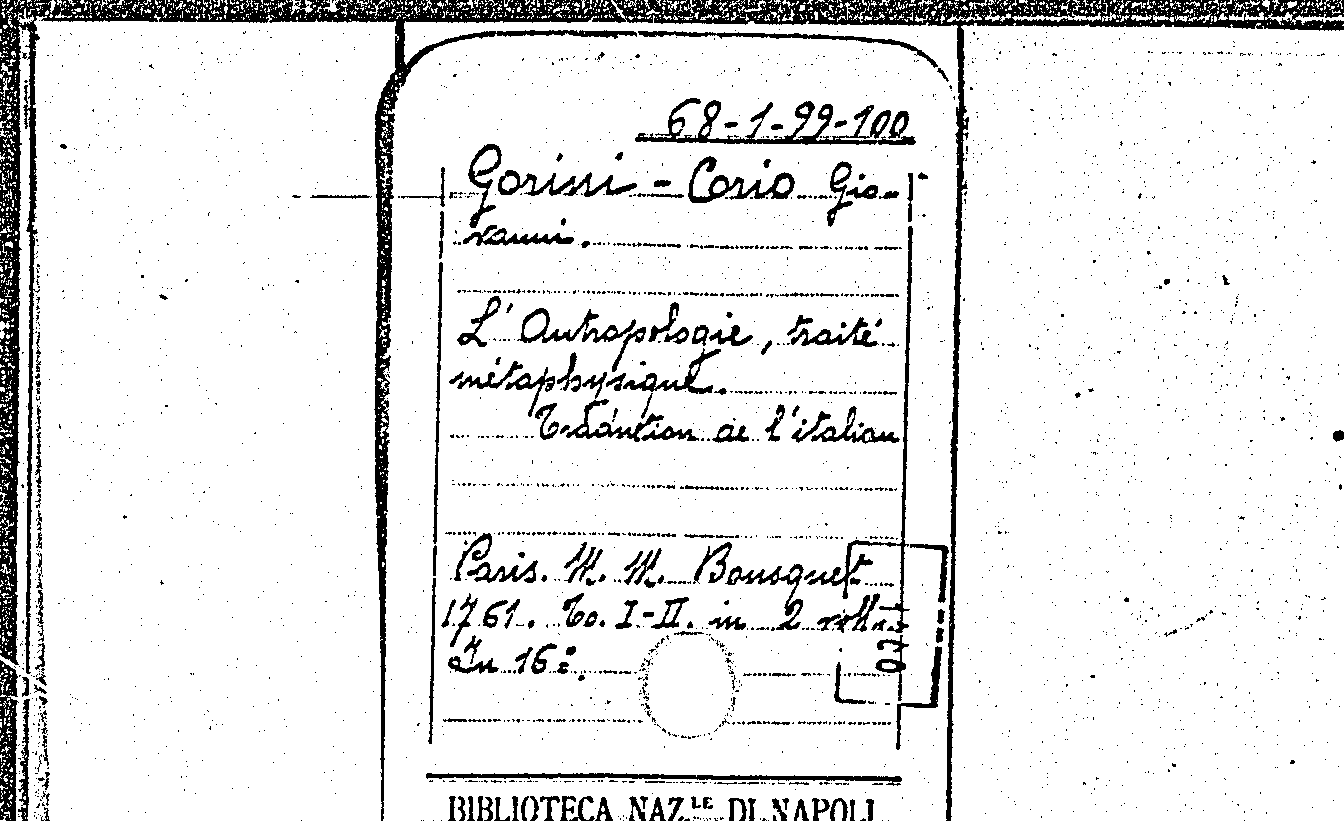 68-1-99-100
Gorini - Corio Gio-
vanni.
L' Antropologie, traité
métaphysique.
Traduction de l'italien
Paris. M. M. Bousquet
1761. To. I-II. in 2
In 16°.
BIBLIOTECA NAZ.LE DI NAPOLI